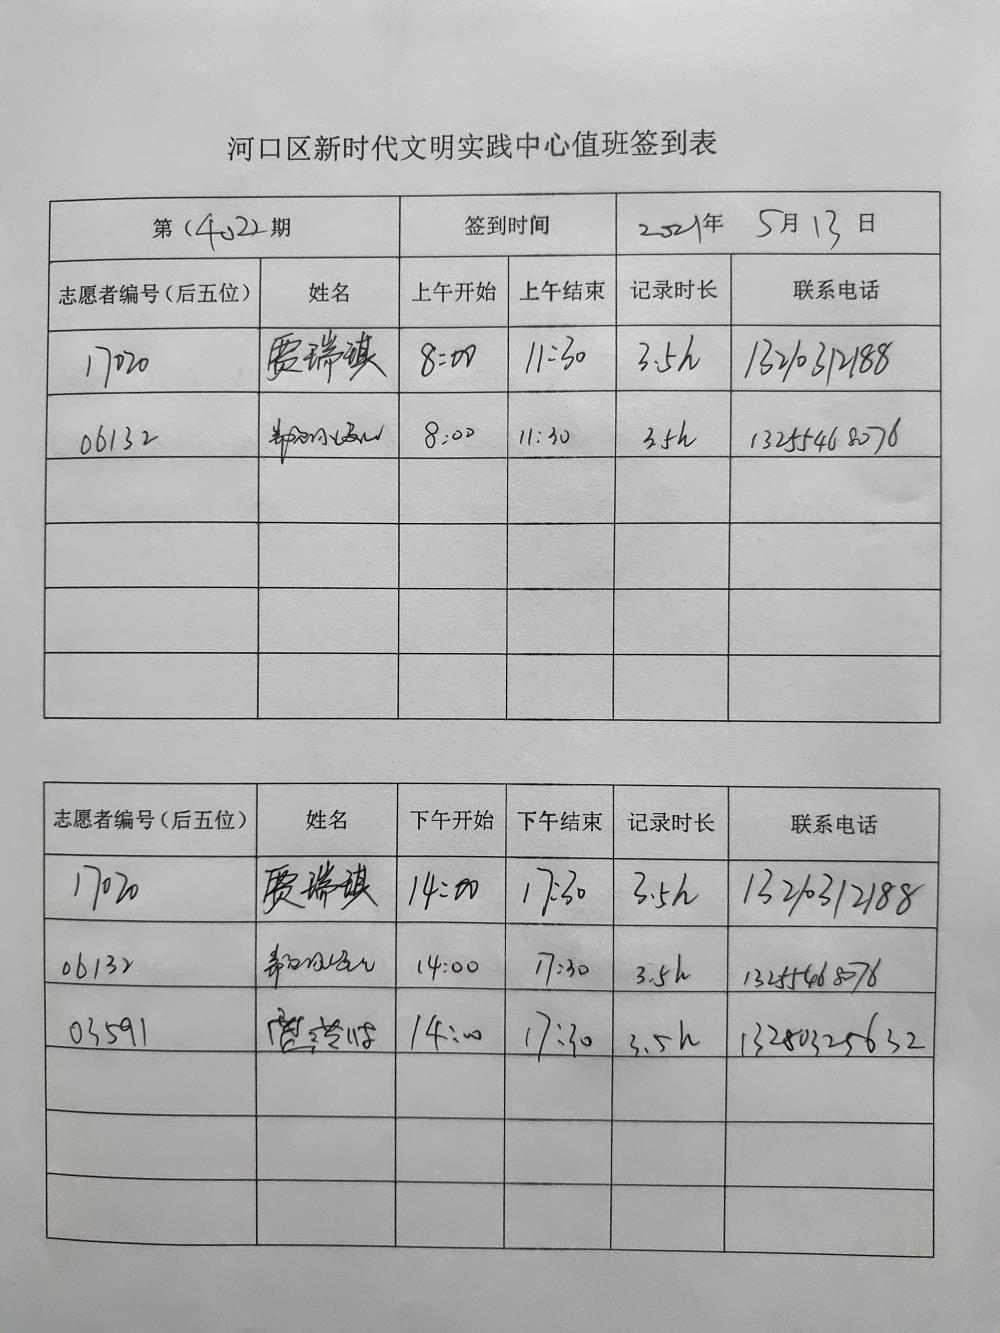 河口区新时代文明实践中心值班签到表
第（402）期 签到时间 2021年 5月13日
志愿者编号（后五位） 姓名 上午开始 上午结束 记录时长 联系电话
17020 贾瑞琪 8:00 11:30 3.5h 13210312188
06132 8:00 11:30 3.5h 13255468076
志愿者编号（后五位） 姓名 下午开始 下午结束 记录时长 联系电话
17020 贾瑞琪 14:00 17:30 3.5h 13210312188
06132 14:00 17:30 3.5h 13255468076
03591 14:00 17:30 3.5h 13280325632